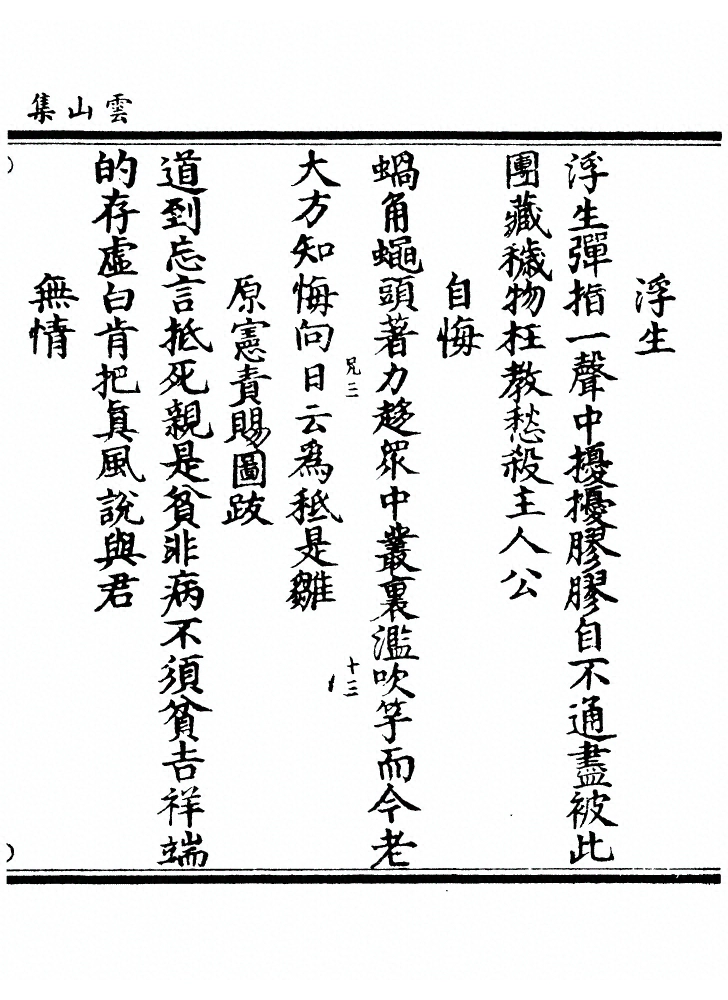 雲山集
浮生
浮生彈指一聲中擾擾膠膠自不通盡被此
團藏穢物枉教愁殺主人公
自悔
蝸角蠅頭著力趍眾中叢裏濫吹竽而今老
兄三
十三
大方知悔向日云為秪是雛
原憲責賜圖跋
道到忘言抵死親是貧非病不須貧吉祥端
的存虛白肯把真風說與君
無情